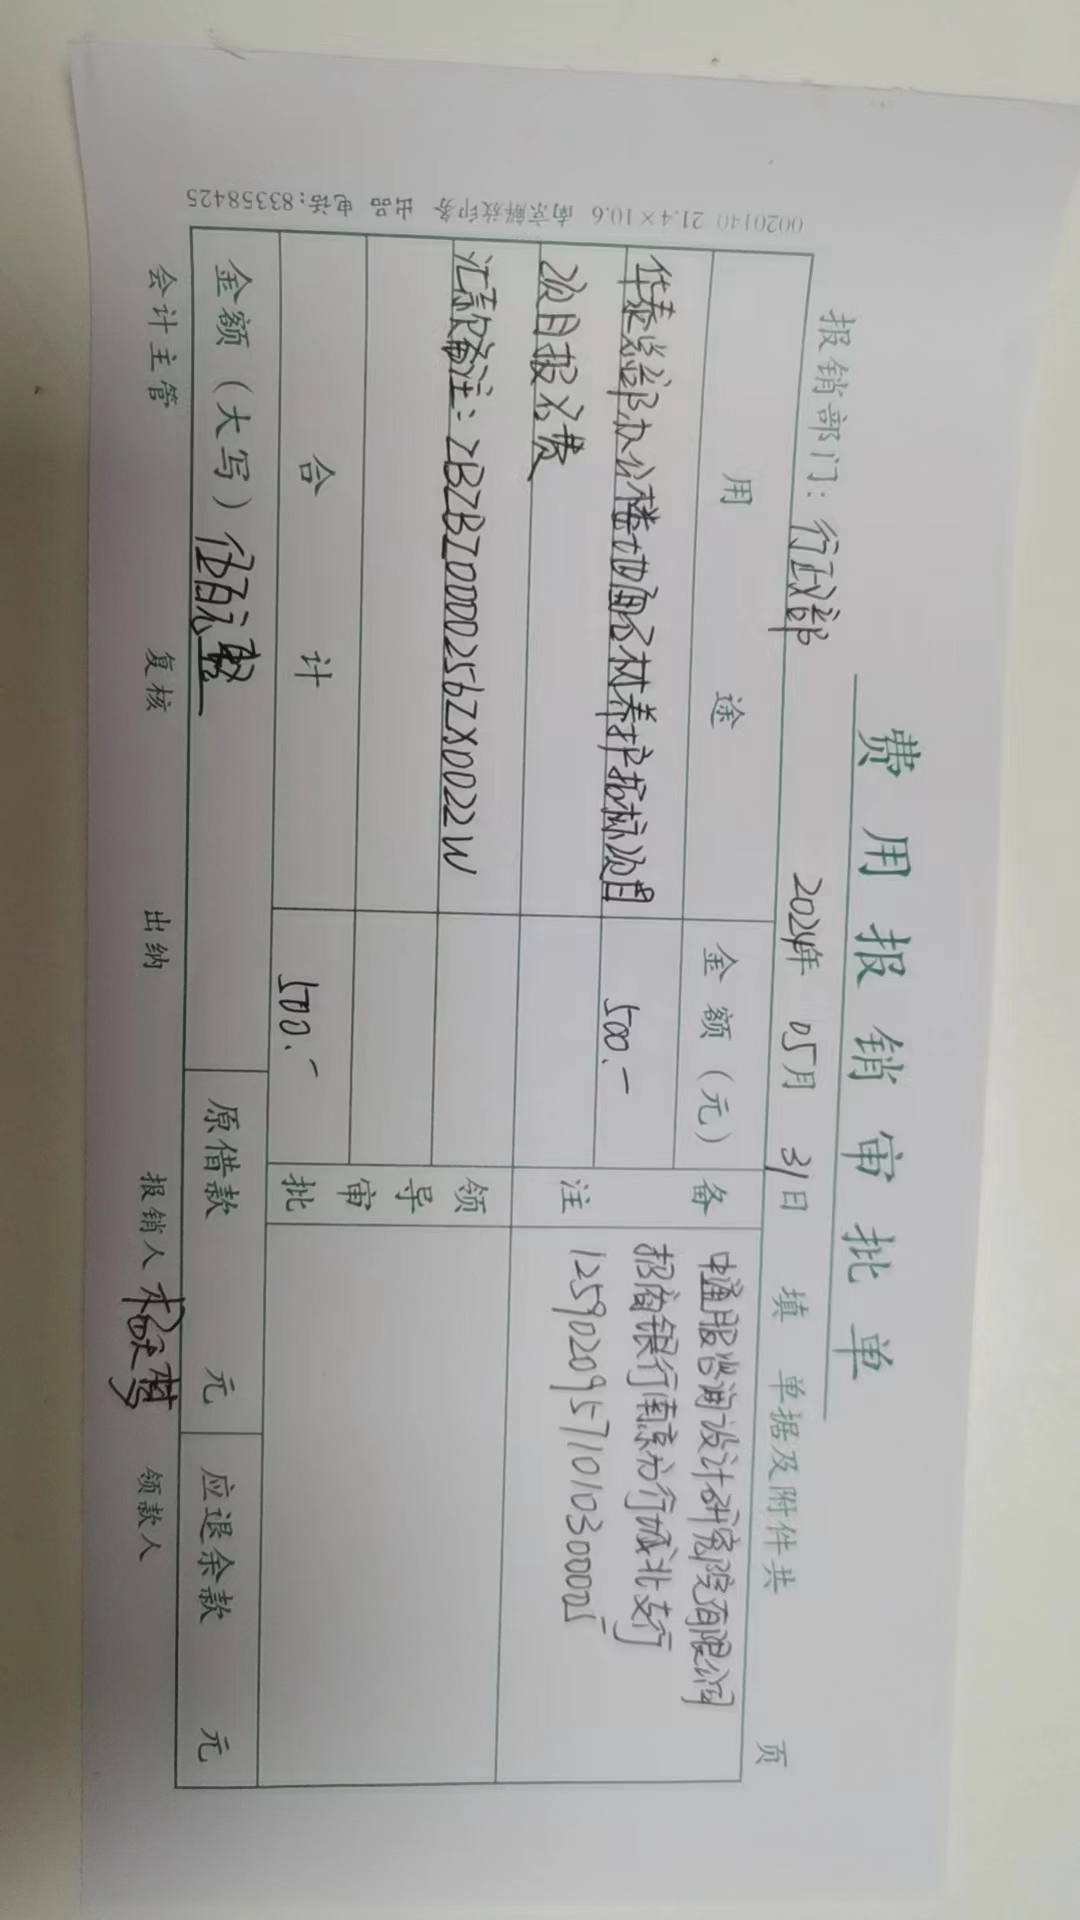 费用报销审批单
报销部门：行政部 2024年 05月 31日 填 单据及附件共 页
用途 金额（元） 备注
华泰总部办公楼地面石材养护招标项目 500.-
项目报名费
汇款备注：ZBZBZ0000256ZX0022W
中通服咨询设计研究院有限公司
招商银行南京分行城北支行
125902095710103000025
领导审批
合计 500.-
金额（大写）伍佰元整 原借款 元 应退余款 元
会计主管 复核 出纳 报销人 领款人
0020140 21.4×10.6 南京解放印务 出品 电话：83358425